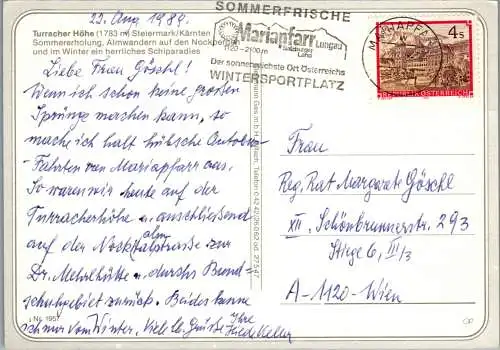 SOMMERFRISCHE
23. Aug. 1989.
Turracher Höhe (1783 m) Steiermark/Kärnten
Sommererholung, Almwandern auf den Nockbergen
und im Winter ein herrliches Schiparadies
Mariapfarr Lungau
1120-2100m Salzburger Land
Der sonnenreichste Ort Österreichs
WINTERSPORTPLATZ
MARIAPFARR
4 S
REPUBLIK ÖSTERREICH
Liebe Frau Göschl!
Wenn ich schon keine großen
Sprünge machen kann, so
mache ich halt hübsche Autobus-
Fahrten von Mariapfarr aus.
So waren wir heute auf der
Turracherhöhe u. anschließend
auf der Nockalmstraße zur
Dr. Mehrlhütte u. durchs Bund-
schuhgebiet zurück. Beides kenne
ich nur vom Winter. Viele lb. Grüße Ihre
Heide Keller
Frau
Reg. Rat Margarete Göschl
XII. Schönbrunnerstr. 293
Stiege 6, III/3
A-1120-Wien